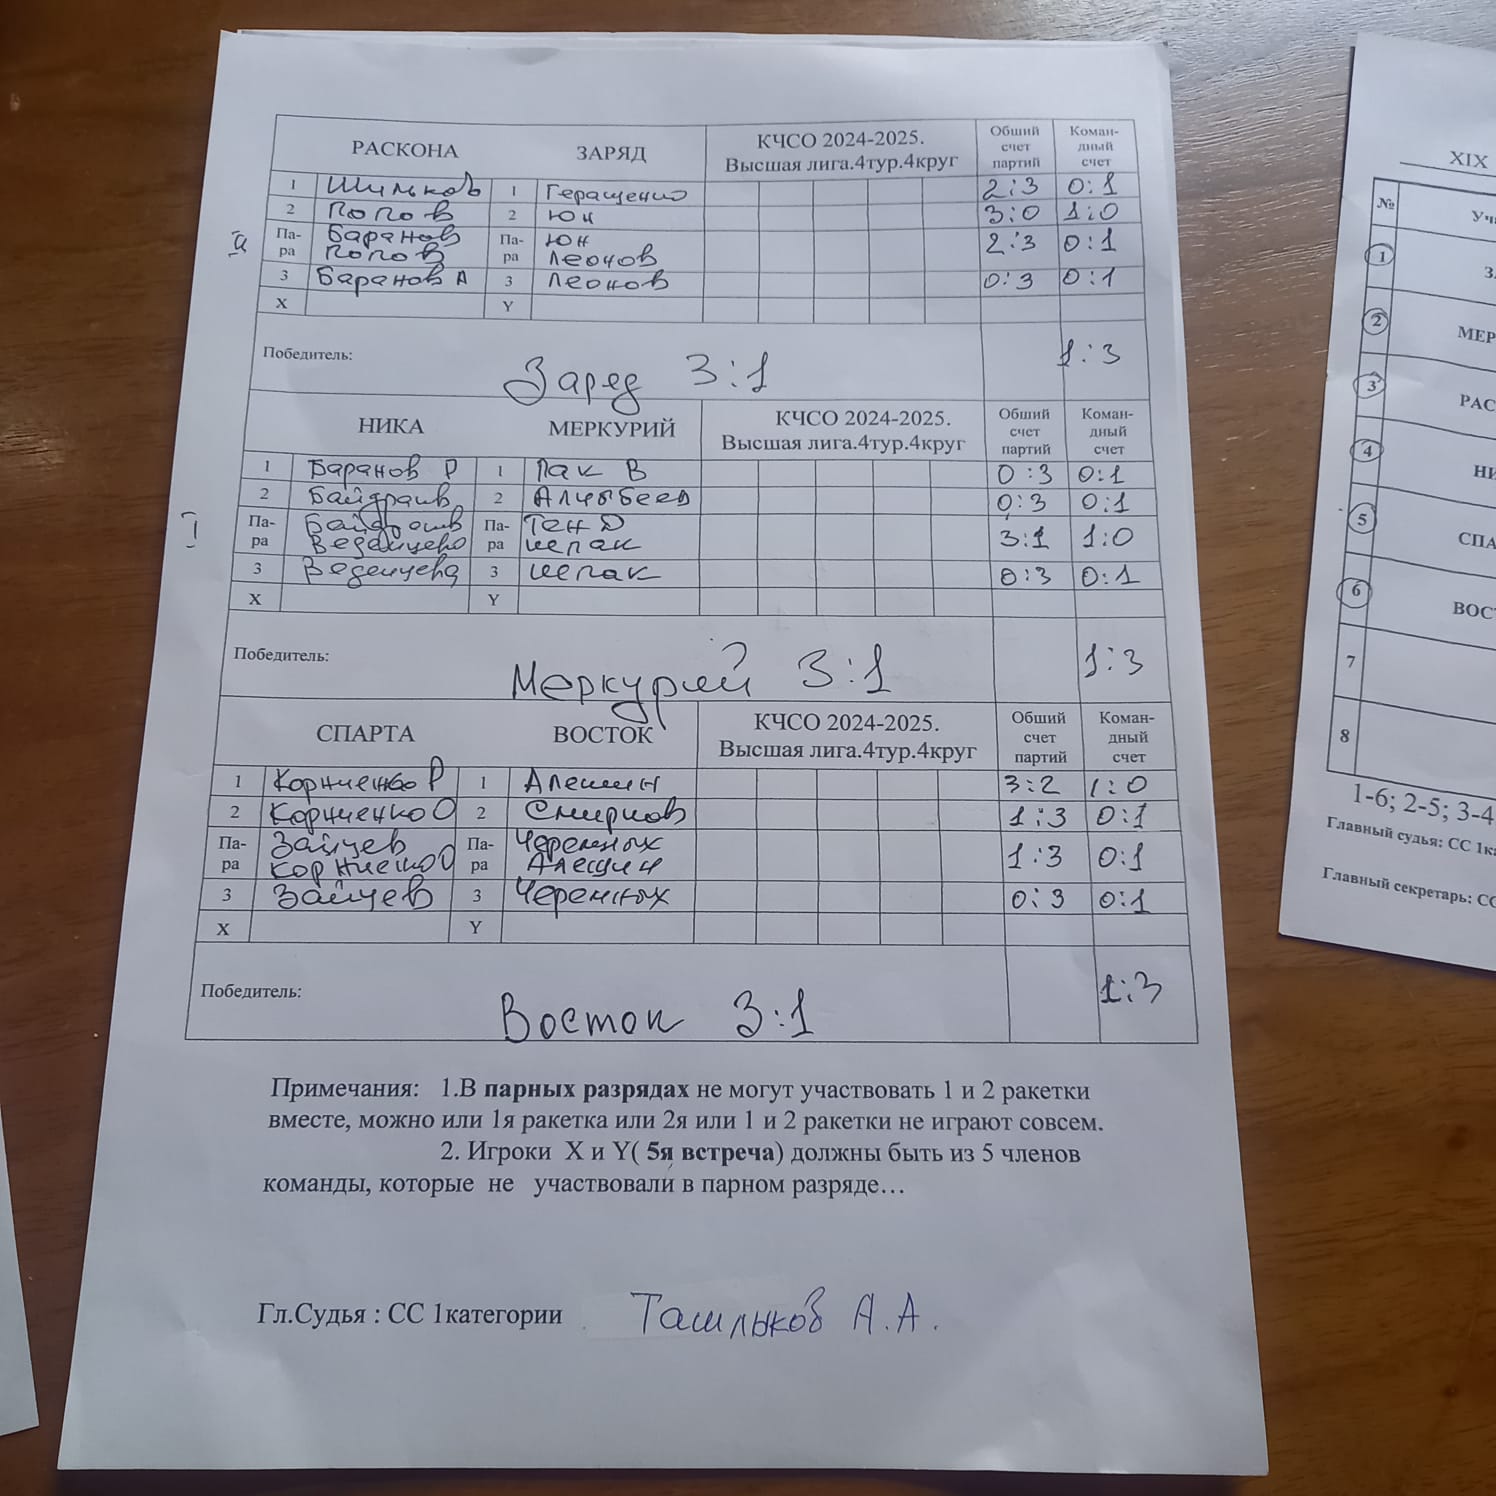 РАСКОНА ЗАРЯД КЧСО 2024-2025. Высшая лига.4тур.4круг Общий счет партий Коман-дный счет
1 Шильков 1 Геращенко 2:3 0:1
2 Попов 2 Юн 3:0 1:0
II Па-ра Баранов Попов Па-ра Юн Леонов 2:3 0:1
3 Баранов А 3 Леонов 0:3 0:1
X Y
Победитель: Заряд 3:1 1:3
НИКА МЕРКУРИЙ КЧСО 2024-2025. Высшая лига.4тур.4круг Общий счет партий Коман-дный счет
1 Баранов Р 1 Пак В 0:3 0:1
2 2 0:3 0:1
I Па-ра Па-ра Тен Д 3:1 1:0
3 3 0:3 0:1
X Y
Победитель: Меркурий 3:1 1:3
СПАРТА ВОСТОК КЧСО 2024-2025. Высшая лига.4тур.4круг Общий счет партий Коман-дный счет
1 Корниенко Р 1 Алешин 3:2 1:0
2 Корниенко О 2 Смирнов 1:3 0:1
Па-ра Зайцев Корниенко О Па-ра Черемных Алешин 1:3 0:1
3 Зайцев 3 Черемных 0:3 0:1
X Y
Победитель: Восток 3:1 1:3
Примечания: 1.В парных разрядах не могут участвовать 1 и 2 ракетки
вместе, можно или 1я ракетка или 2я или 1 и 2 ракетки не играют совсем.
2. Игроки X и Y( 5я встреча) должны быть из 5 членов
команды, которые не участвовали в парном разряде…
Гл.Судья : СС 1категории Ташлыков А.А.
XIX
№
1
2 МЕР
3 РАС
4 НИ
5 СПА
6 ВОС
7
8
1-6; 2-5; 3-4
Главный судья: СС 1к
Главный секретарь: СС